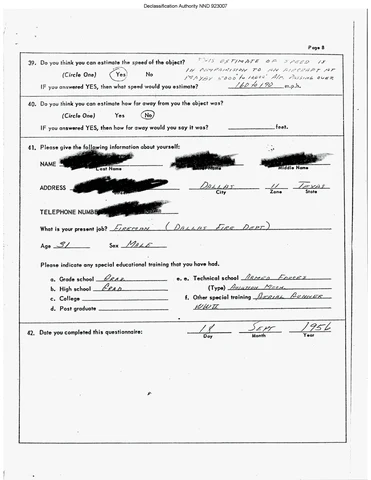 Declassification Authority NND 923007
Page 8
39. Do you think you can estimate the speed of the object? THIS ESTIMATE OF SPEED IS
(Circle One) Yes No IN COMPARISON TO AN AIRCRAFT AT
MAYBE 8000 to AIR PASSING OVER
IF you answered YES, then what speed would you estimate? 160 to 190 m.p.h.
40. Do you think you can estimate how far away from you the object was?
(Circle One) Yes No
IF you answered YES, then how far away would you say it was? feet.
41. Please give the following information about yourself:
NAME
Last Name Middle Name
ADDRESS DALLAS 11 TEXAS
City Zone State
TELEPHONE NUMBER
What is your present job? FIREMAN (DALLAS FIRE DEPT)
Age 31 Sex MALE
Please indicate any special educational training that you have had.
a. Grade school GRAD e. e. Technical school ARMED FORCES
b. High school GRAD (Type) AVIATION MECH.
c. College f. Other special training AERIAL GUNNER
d. Post graduate WWII
42. Date you completed this questionnaire: 18 SEPT 1956
Day Month Year